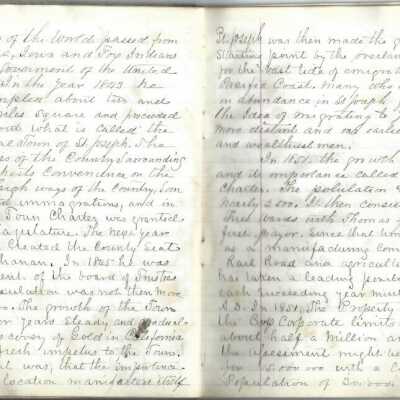 of the World passed from
Iowa and Fox Indians
Goverment of the United
In the year 1843 he
about two and
Square and proceeded
what is called the
Town of St Joseph. The
of the Country Surrounding
Convenience on the
high ways of the Country, Soon
immigrations, and in
Town Charter was granted
The next year
Created the County Seat
Buchanan. In 1845 he was
of the board of Trustees
was not then more
The growth of the Town
for years Steady and Gradual
discovery of Gold in California
fresh impetus to the Town.
was, that the importance
location manifested itself
St Joseph was then made the
Starting point by the overland
for the vast tide of emigration
Pacific Coast. Many who
in abundance in St Joseph
the Idea of migrating to
more distant and our earliest
and wealthiest men.
In 1851. the growth
and its importance called
Charter. The population
nearly 2.500. It then
Three wards with Thomas
first Mayor. Since that time
as a manufacturing
Rail Road and
has taken a leading
each succeeding year
A.D. In 1851, The Property
the Corporate limits
about half a Million
the assessment might
15.000.000 with a
Population of